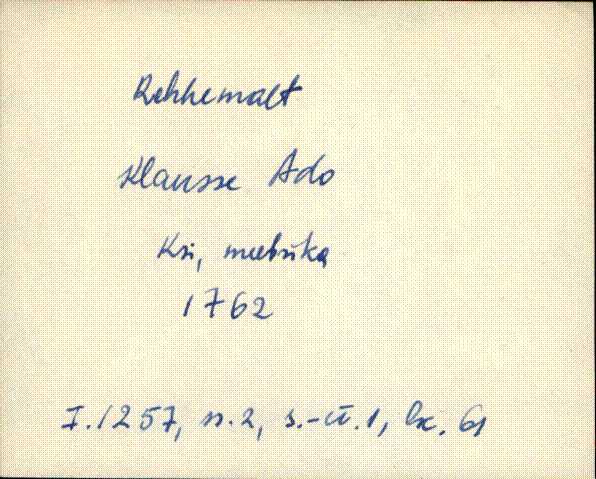 Rehhemalt
Klausse Ado
Ksi, meetrika
1762
I.1257, n.2, s.-ü.1, lk. 61